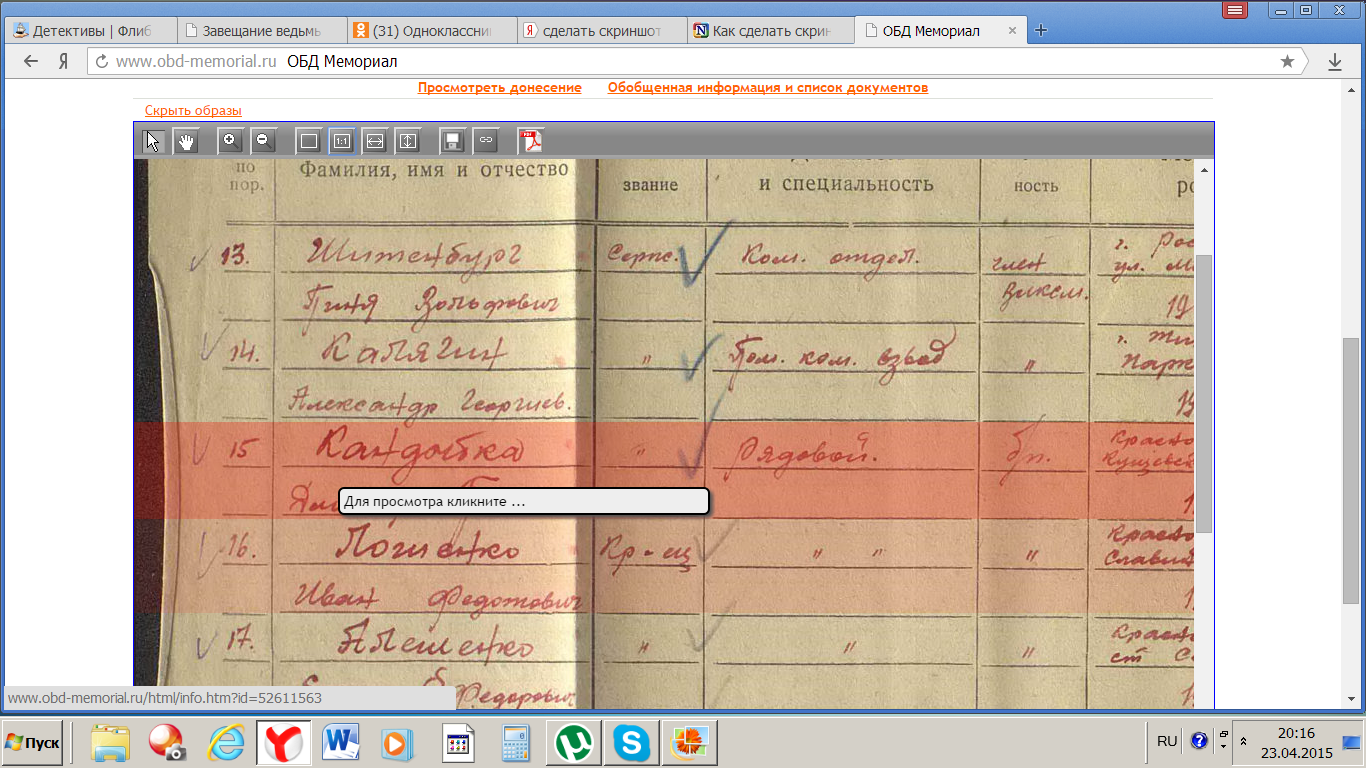 Детективы | Флиб
Завещание ведьмы
(31) Одноклассни
сделать скриншот
Как сделать скрин
ОБД Мемориал
www.obd-memorial.ru ОБД Мемориал
Просмотреть донесение Обобщенная информация и список документов
Скрыть образы
1:1
PDF
по пор.
Фамилия, имя и отчество
звание
и специальность
ность
ро
13. Шитенбург Серж. Ком. отдел. член г. Рос
ул. М
Вольфович ВЛКСМ. 19
14. Калягин " Пом. ком. взвод " г.
Александр Георгиев. 19
15 " Рядовой. б/п. Красно
Кущевск
Для просмотра кликните ...
16. Логиенко Кр-ец " " " Красно
Славян
Иван Федотович
17. Алешенко " " " Красно
ст С
Федорович
www.obd-memorial.ru/html/info.htm?id=52611563
Пуск
RU
20:16
23.04.2015